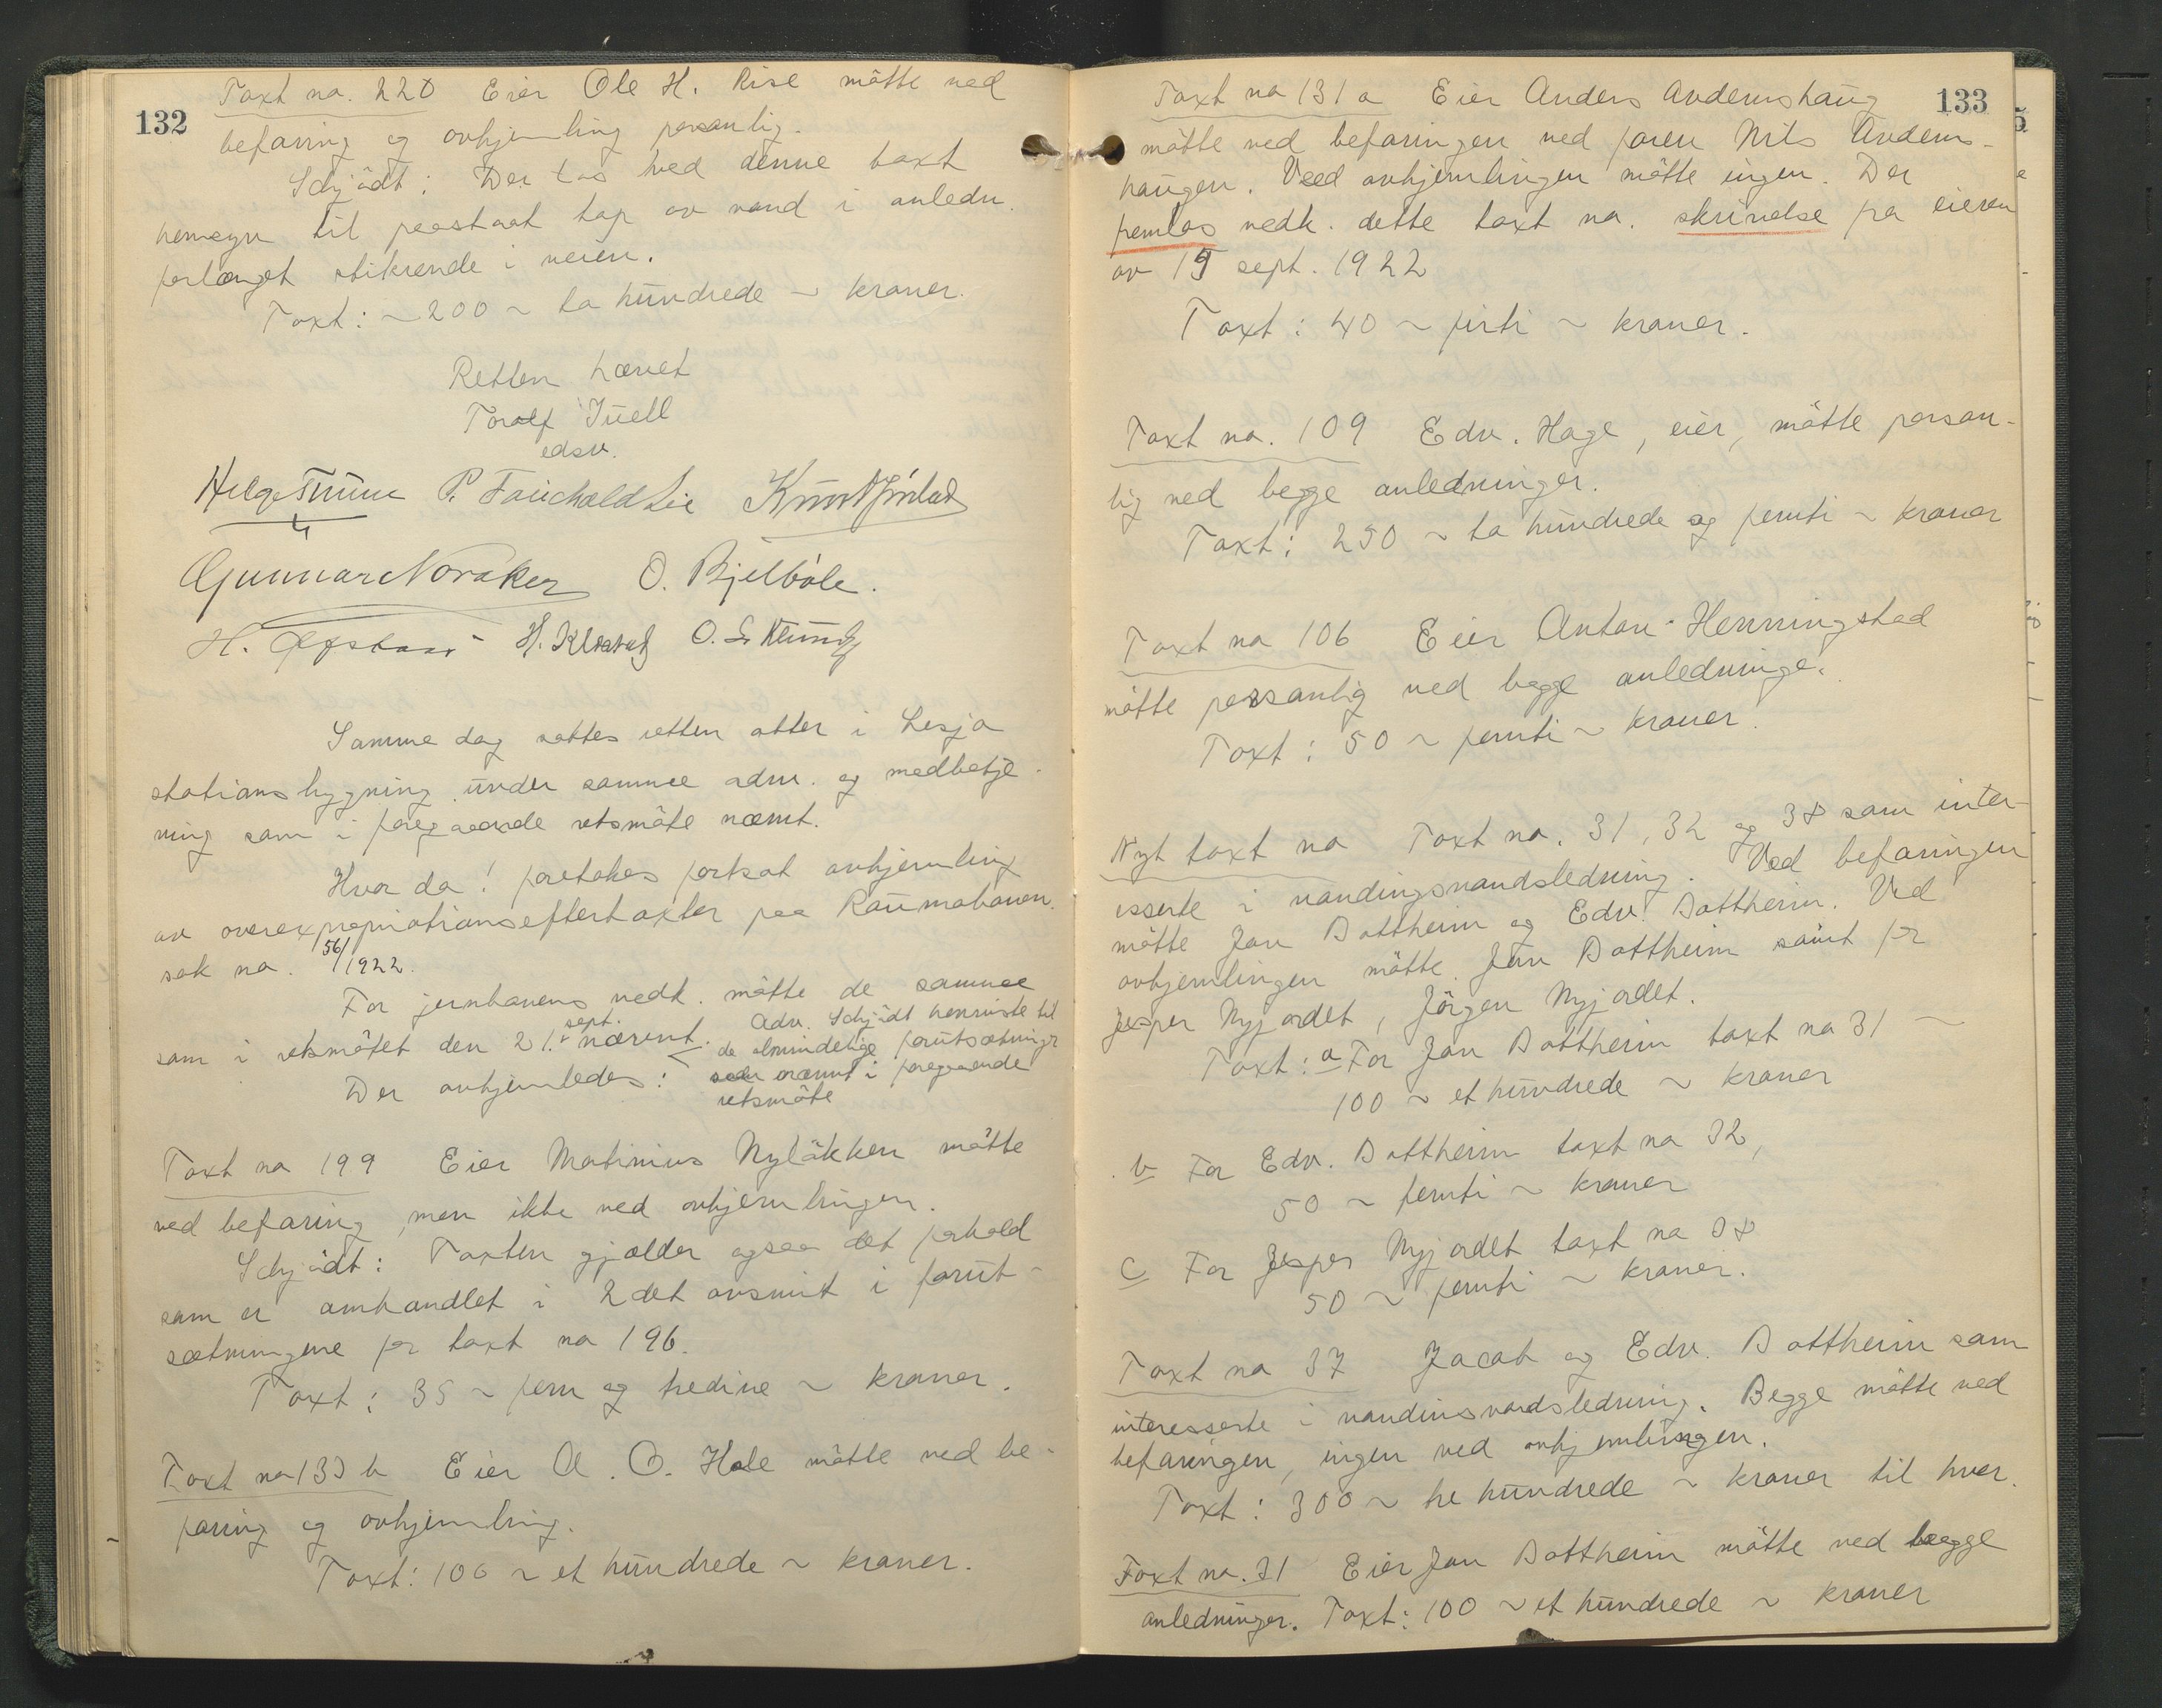 132
Taxt no. 220 Eier Ole H. Rise mötte ved
befaring og avhjemling personlig.
Schjödt: Der tas ved denne taxt
hensyn til paastaat tap av vand i anledn.
forlænget stikrende i veien.
Taxt: ~ 200 ~ to hundrede ~ kroner.
Retten hævet
Toralf Juell
edsv.
Helge P. Fauchald Lie Knut
Gunnar Noraker O. Bjelböle.
H. H. O. S. Klung
Samme dag sattes retten atter i Lesja
stationsbygning under samme adm. og medbetje-
ning som i foregaaende retsmöte nævnt.
Hvor da! foretokes fortsat avhjemling
av overexpropriationseftertaxter paa Raumabanen.
sak no. 56/1922.
For jernbanens vedk. mötte de samme
som i retsmötet den 21. sept. nævnt. Adv. Schjödt henviste til
de almindelige forutsætninger
nævnt i foregaaende
retsmöte
Der avhjemledes:
Taxt no 199 Eier Matinius Nylökken mötte
ved befaring, men ikke ved avhjemlingen.
Schjödt: Taxten gjælder ogsaa det forhold
som er omhandlet i 2det avsnit i forut-
sætningene for taxt no 196.
Taxt: 35 ~ fem og tredive ~ kroner.
Taxt no 133 b Eier A. O. Hole mötte ved be-
faring og avhjemling.
Taxt: 100 ~ et hundrede ~ kroner.
133
Taxt no 131 a Eier Anders Andemshaug
mötte ved befaringen ved faren Nils Andems-
haugen. Ved avhjemlingen mötte ingen. Der
fremlas vedk. dette taxt no. skrivelse fra eieren
av 15 sept. 1922
Taxt: 40 ~ firti ~ kroner.
Taxt no. 109 Edv. Hage, eier, mötte person-
lig ved begge anledninger.
Taxt: 250 ~ to hundrede og femti ~ kroner
Taxt no 106 Eier Anton Henningstad
mötte personlig ved begge anledninge.
Taxt: 50 ~ femti ~ kroner.
Nyt taxt no Taxt no. 31, 32 og 38 som inter-
esserte i vandingsvandsledning. Ved befaringen
mötte Jon Dottheim og Edv. Dottheim. Ved
avhjemlingen mötte Jon Dottheim samt for
Jesper Nyjordet, Jörgen Nyjordet.
Taxt: a For Jon Dottheim taxt no 31 ~
100 ~ et hundrede ~ kroner
b For Edv. Dottheim taxt no 32,
50 ~ femti ~ kroner
c For Jesper Nyjordet taxt no 38
50 ~ femti ~ kroner.
Taxt no 37 Jacob og Edv. Dottheim som
interesserte i vandinsvandsledning. Begge mötte ved
befaringen, ingen ved avhjemlingen.
Taxt: 300 ~ tre hundrede ~ kroner til hver.
Taxt no. 31 Eier Jon Dottheim mötte ved begge
anledninger. Taxt: 100 ~ et hundrede ~ kroner